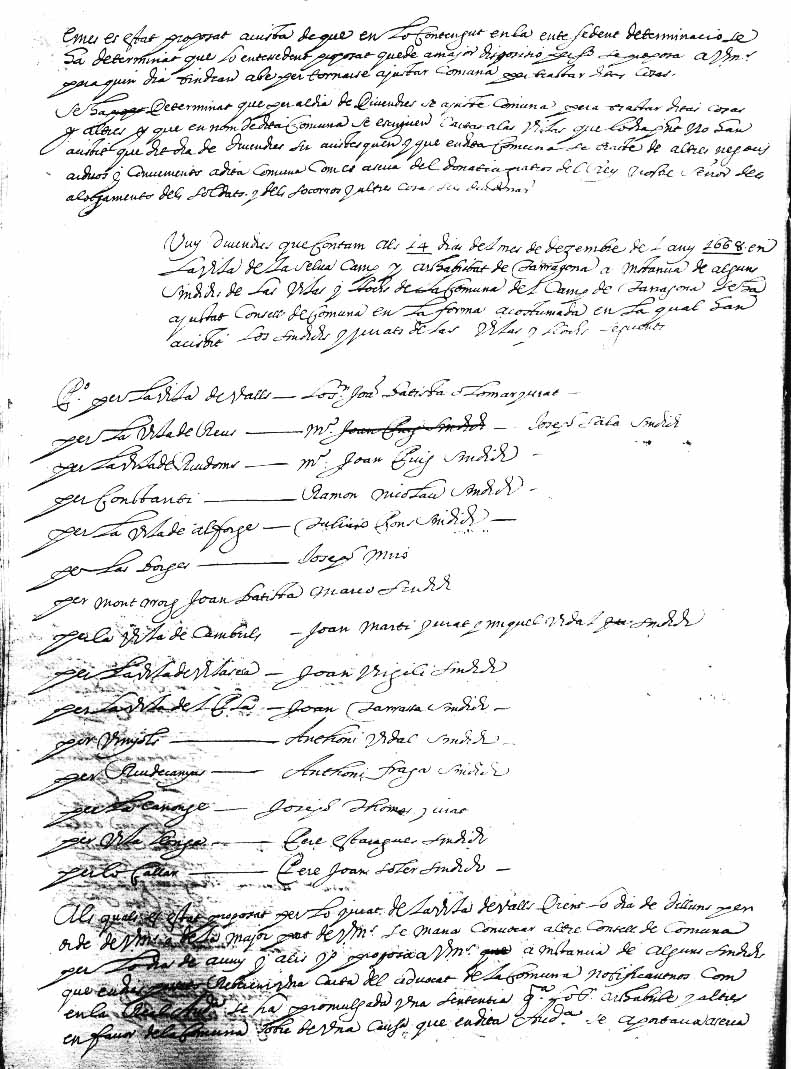 Emes es estat proposat acistba de que en lo Contengut en la ente sedent determinacio se
ha determinat que lo entesedent proposat quede a major disposisio se proposa a Vms
pera quin dia tindran abe per tornarse ajustar Comuna per tractar ditas Cosas.
Se ha Determinat que per al dia de Divendres se ajuste Comuna pera tractar ditas cosas
y altres y que en nom de dita Comuna se escriguen Cartas a las Vilas que lo dia pnt No han
acistit que dit dia de divendres sie acistesquen y que en dita Comuna se tracte de altres negosis
arduos y Convenients a dita Comuna Com es aserca del donatiu gratios del Rey nostre señor dels
alotjaments dels soldats y dels socorros y altres cosas
Vuy divendres que Contam als 14 dias del mes de dezembre del any 1668 en
La Vila de La Selva Camp y archabisbat de Tarragona a instancia de alguns
Sindichs de las Vilas y llochs de la Comuna del Camp de Tarragona se ha
ajustat Consell de Comuna en la forma acostumada en la qual han
acistit los sindichs y jurats de las Vilas y llochs seguents
Po per la Vila de Valls — Lo Sr Joan Batista jurat —
per La Vila de Reus — Mo Joan Puig Sindich — Joseph Sala Sindich
per La Vila de Riudoms — Mo Joan Puig Sindich —
per Constanti — Ramon Nicolau Sindich —
per La Vila de alforge — Julian Pons Sindich —
per Las borges — Joseph Miró
per Mont roig Joan Batista Marco Sindich
per la Vila de Cambrils — Joan Marti jurat y Miquel Vidal Sindich
per La Vila de Vilaseca — Joan Virgili Sindich
per La Vila del Pla — Joan Tarrassa Sindich —
per Vinyols — Anthoni Vidal Sindich —
per Riudecanyas — Anthoni fraga Sindich
per La Canonge — Joseph Thomas jurat
per Vila llonga — Pere estaragues Sindich
per lo Catllar — Pere Joan Soler Sindich —
Als quals es estat proposat per lo jurat de la Vila de Valls Dient Lo dia de dilluns per
orde de Vms o de la major part de Vms se mana Convocar altre Consell de Comuna
per lo dia de avuy y axis proposa a Vms a instancia de alguns Sindichs
que Rebérem una Carta del advocat de la Comuna notificantnos Com
en la Real Auda se ha promulgada una sententia archabisbe y altres
en favor de la Comuna sobre de una Causa que en dita Auda se aportava aserca